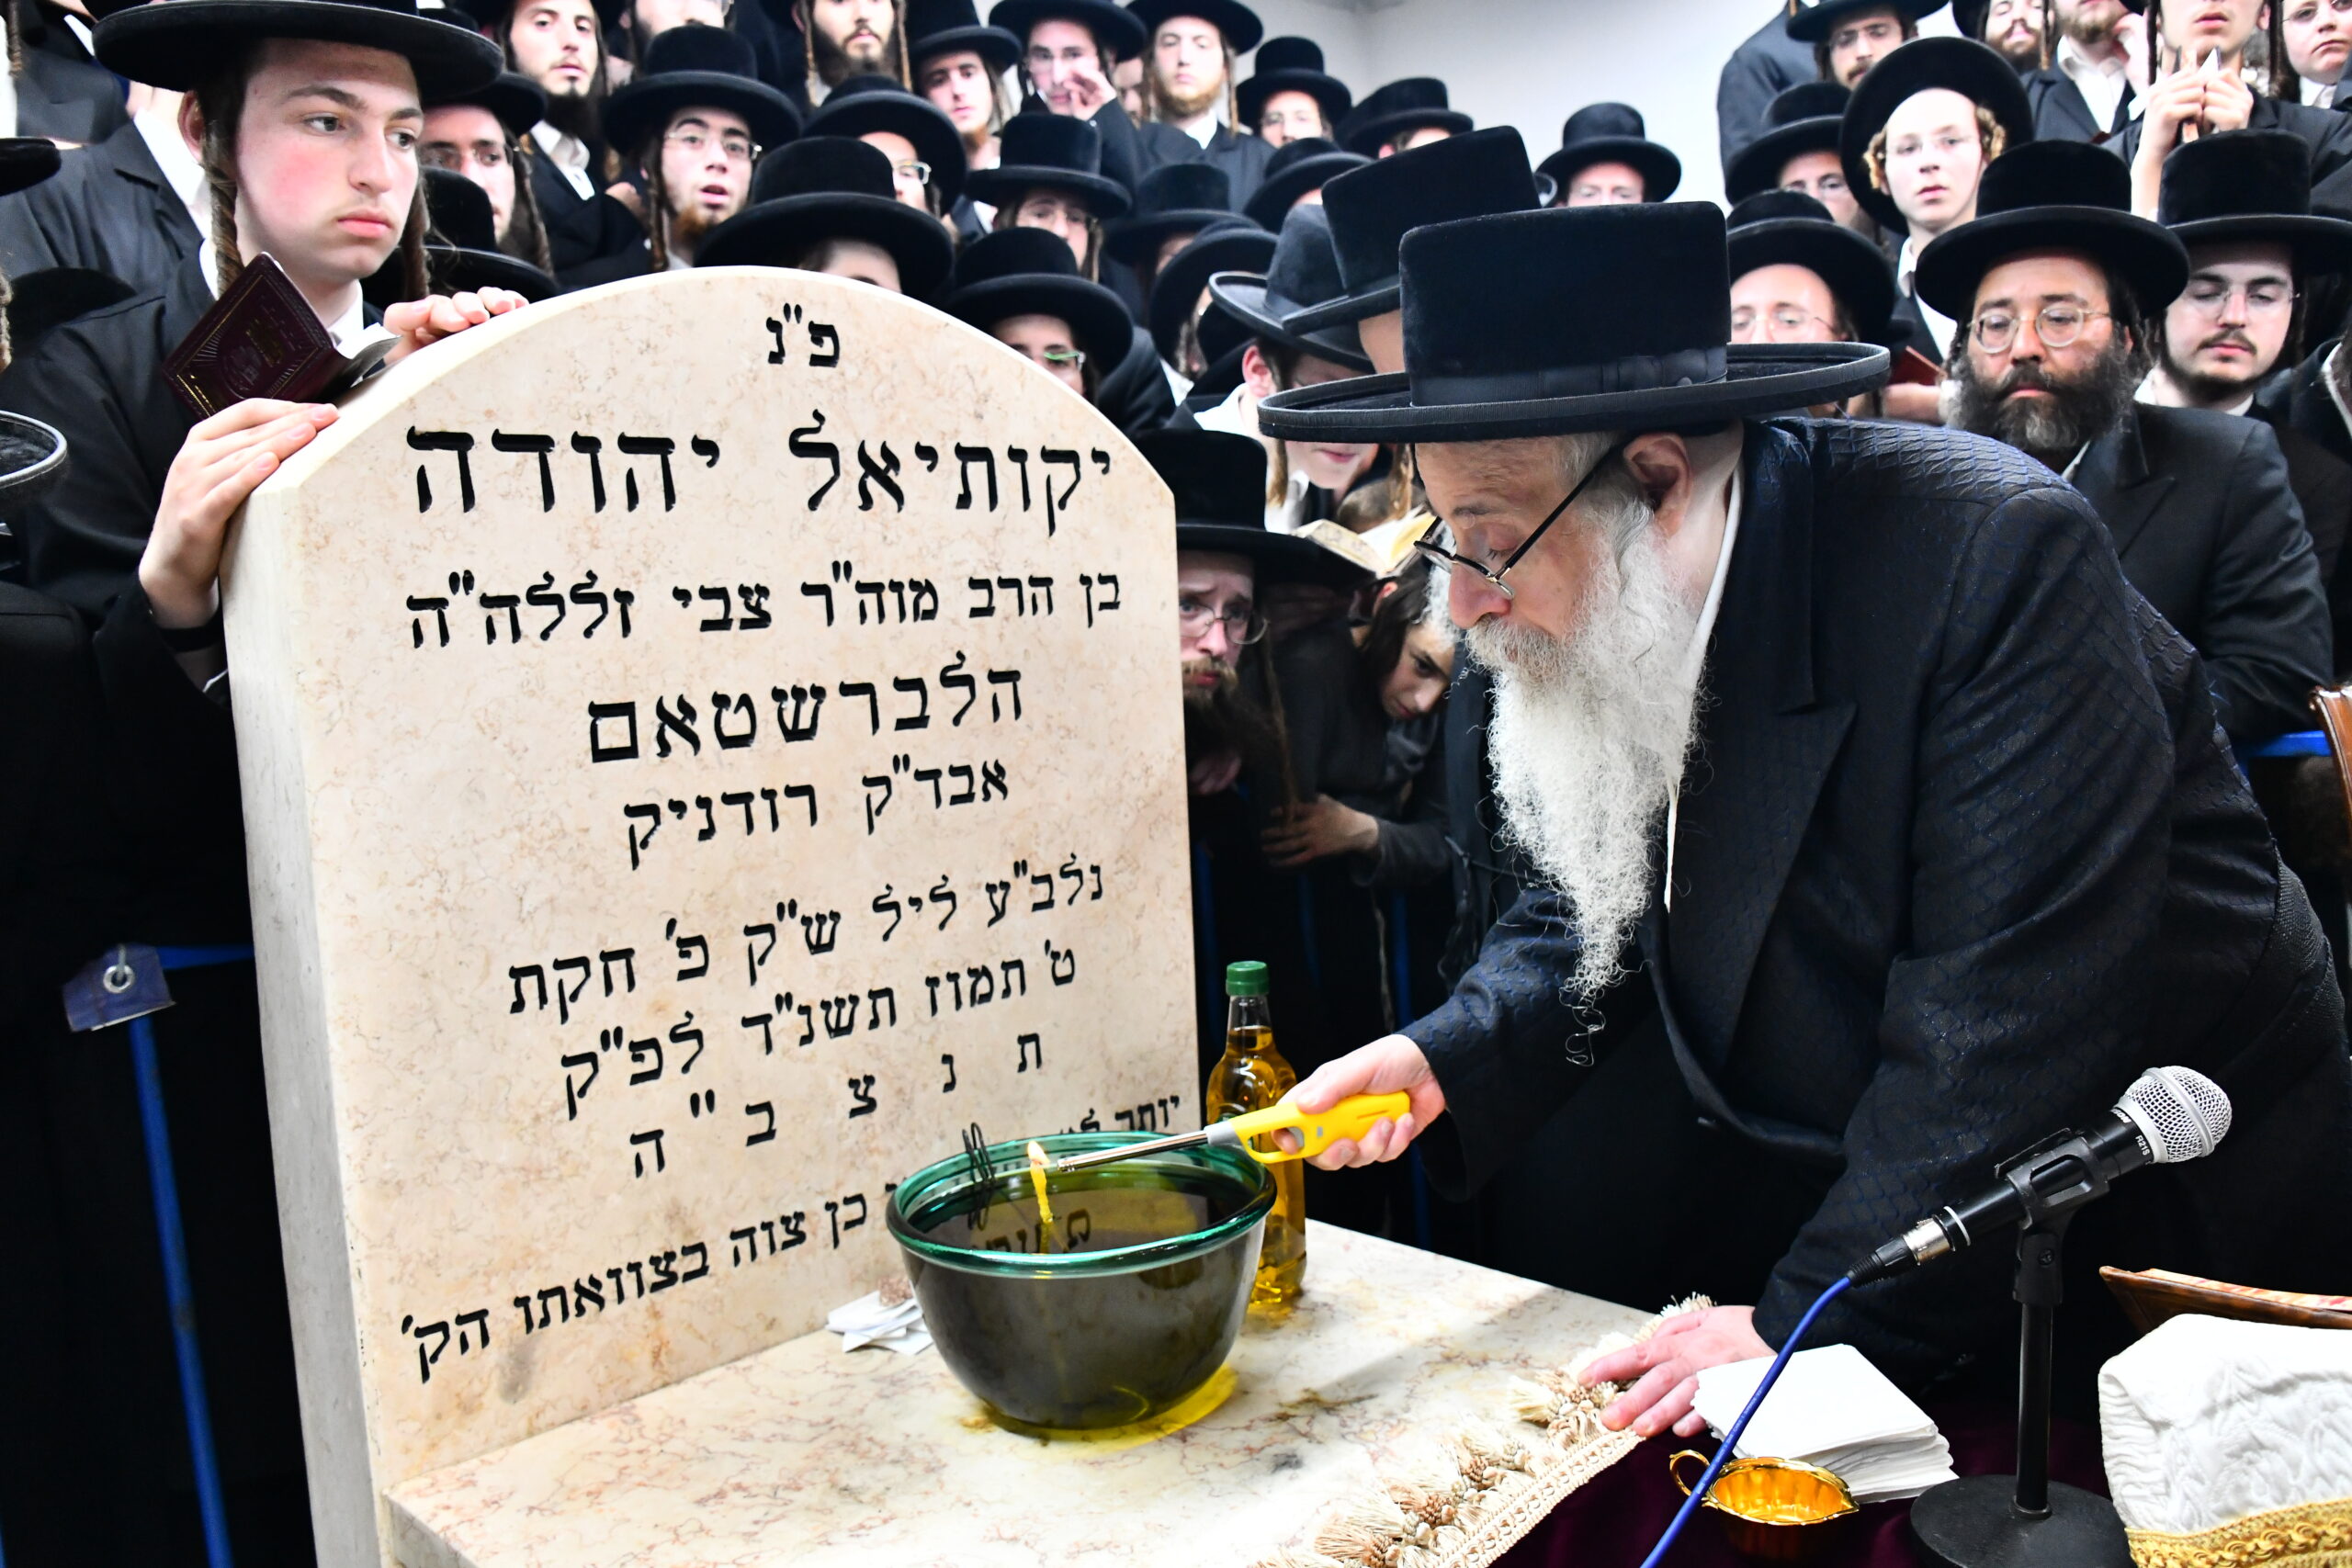 פ"נ
יקותיאל יהודה
בן הרב מוה"ר צבי זללה"ה
הלברשטאם
אבד"ק רודניק
נלב"ע ליל ש"ק פ' חקת
ט' תמוז תשנ"ד לפ"ק
ת נ צ ב " ה
יותר
כן צוה בצוואתו הק'
R21S